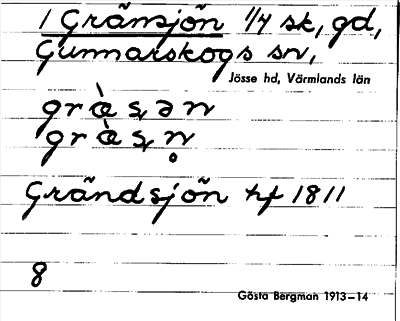 1 Grämsjön 1/4 sk, gd,
Gunnarskogs sn,
Jösse hd, Värmlands län
græ̀s, ə n
græ̀s, n̥
Grändsjön hf 1811
8
Gösta Bergman 1913–14